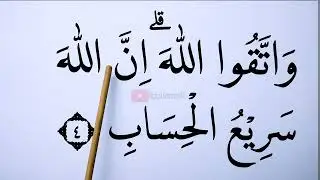 وَاتَّقُوا اللهَ ۗ اِنَّ اللهَ
سَرِيْعُ الْحِسَابِ ﴿٤﴾